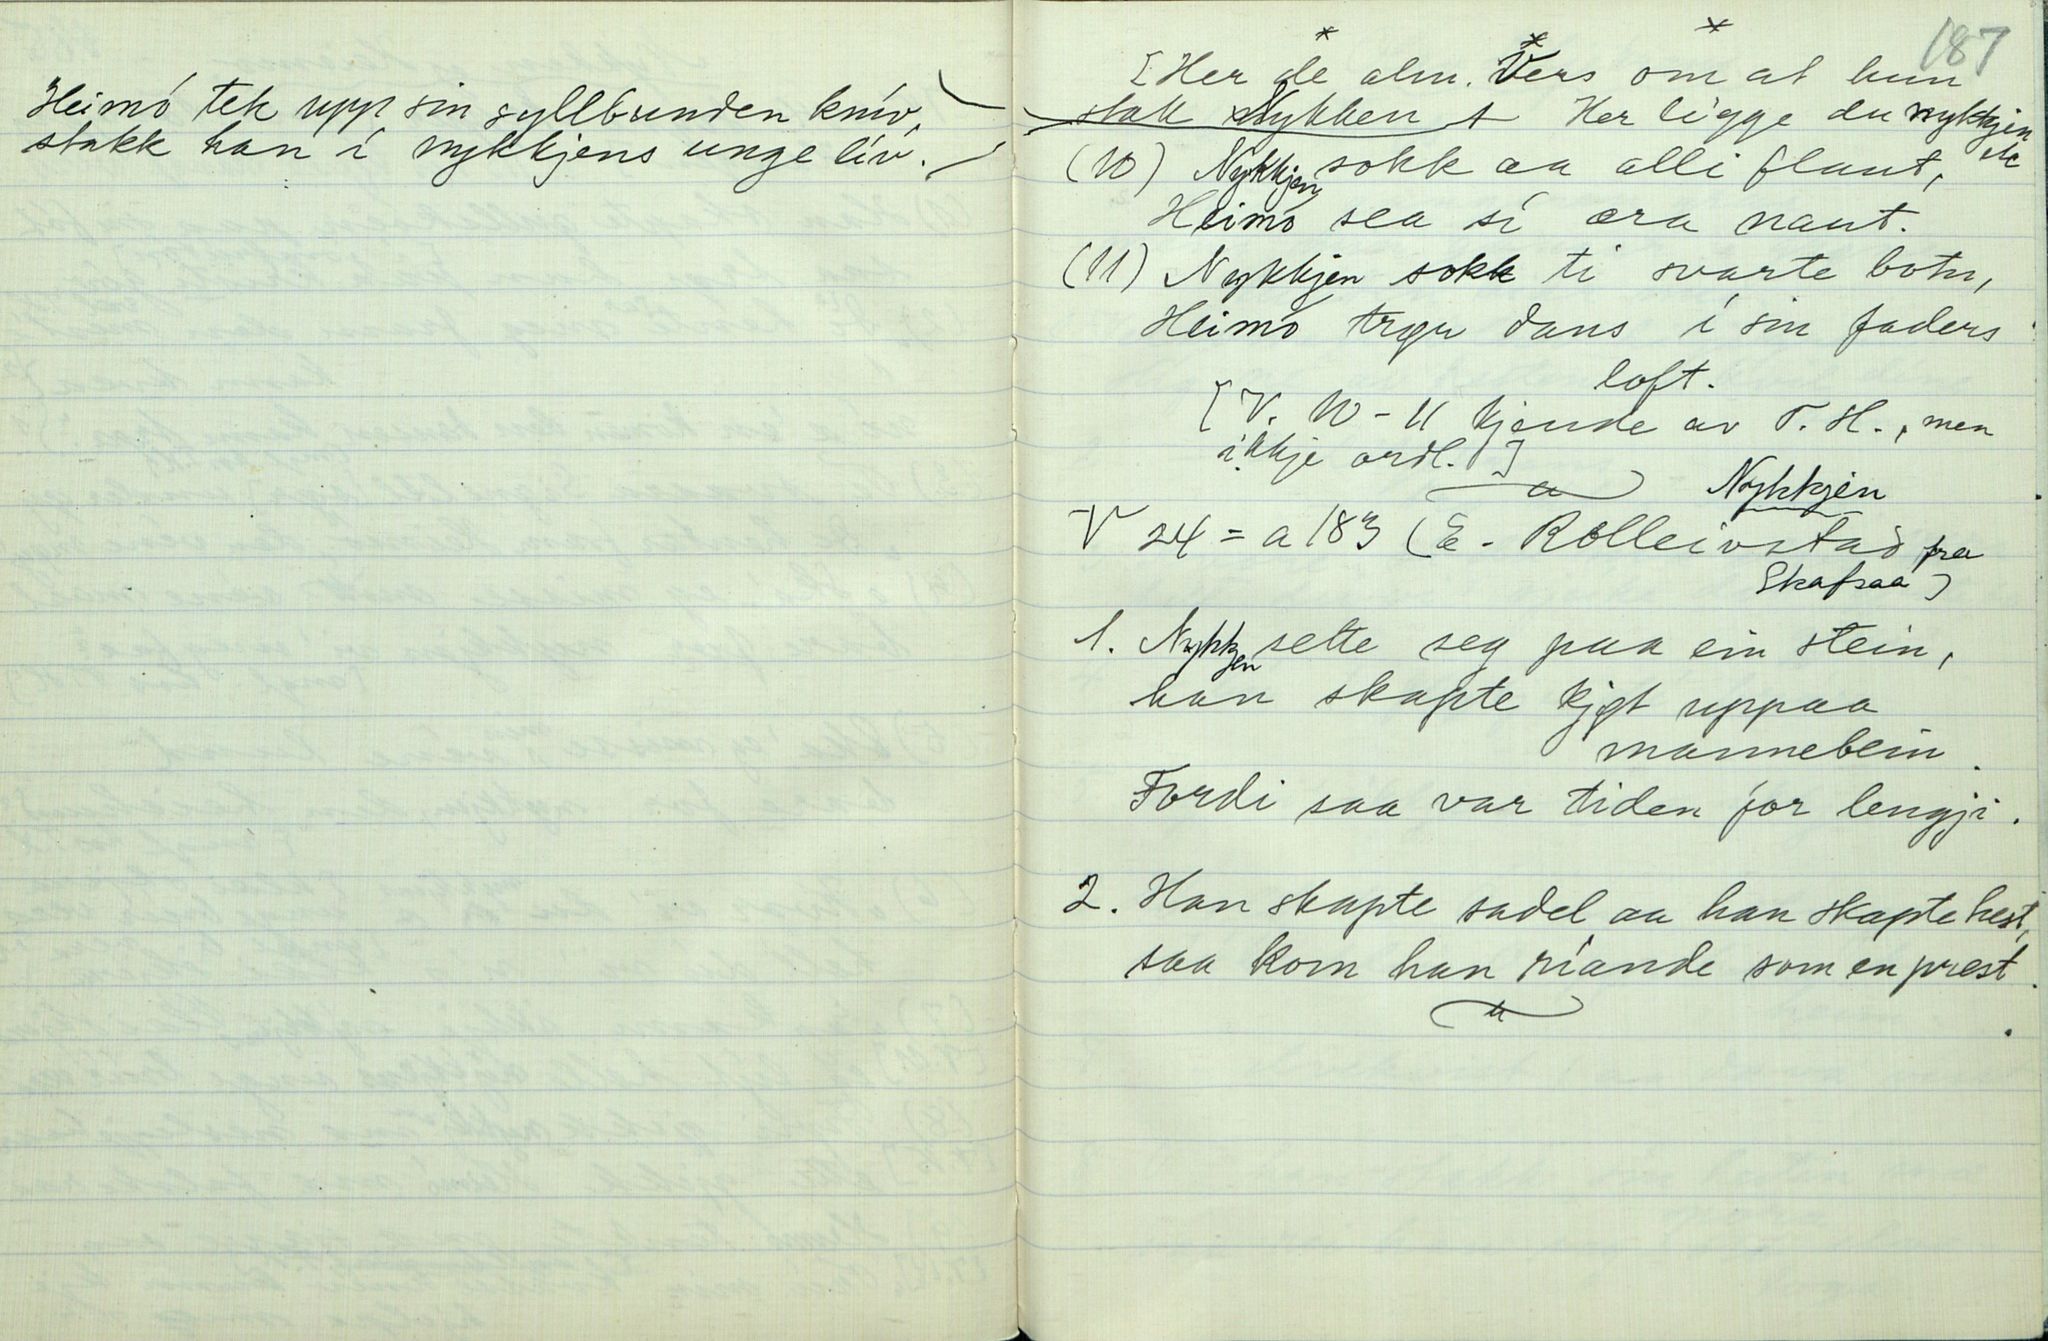 Heimó tek upp sin syllbunden kniv,
stakk han i nykkjens unge liv.
187
[Her de alm. Vers om at hun
stak Nykken + Her ligge du nykkjen etc
(10) Nykkjen sokk aa alli flaut,
Heimó sea si æra naut.
(11) Nykkjen sokk ti svarte botn,
Heimó trør dans i sin faders
loft.
[V. 10-11 kjende av T. H., men
ikkje ordl.]
Nykkjen
V 24 = a 183 (E. Rolleivstad fra
Skafsaa)
1. Nykkjen sette seg paa ein stein,
han skapte kjøt uppaa
mannebein.
Fordi saa var tiden for lengji.
2. Han skapte sadel aa han skapte hest,
saa kom han riande som en prest.